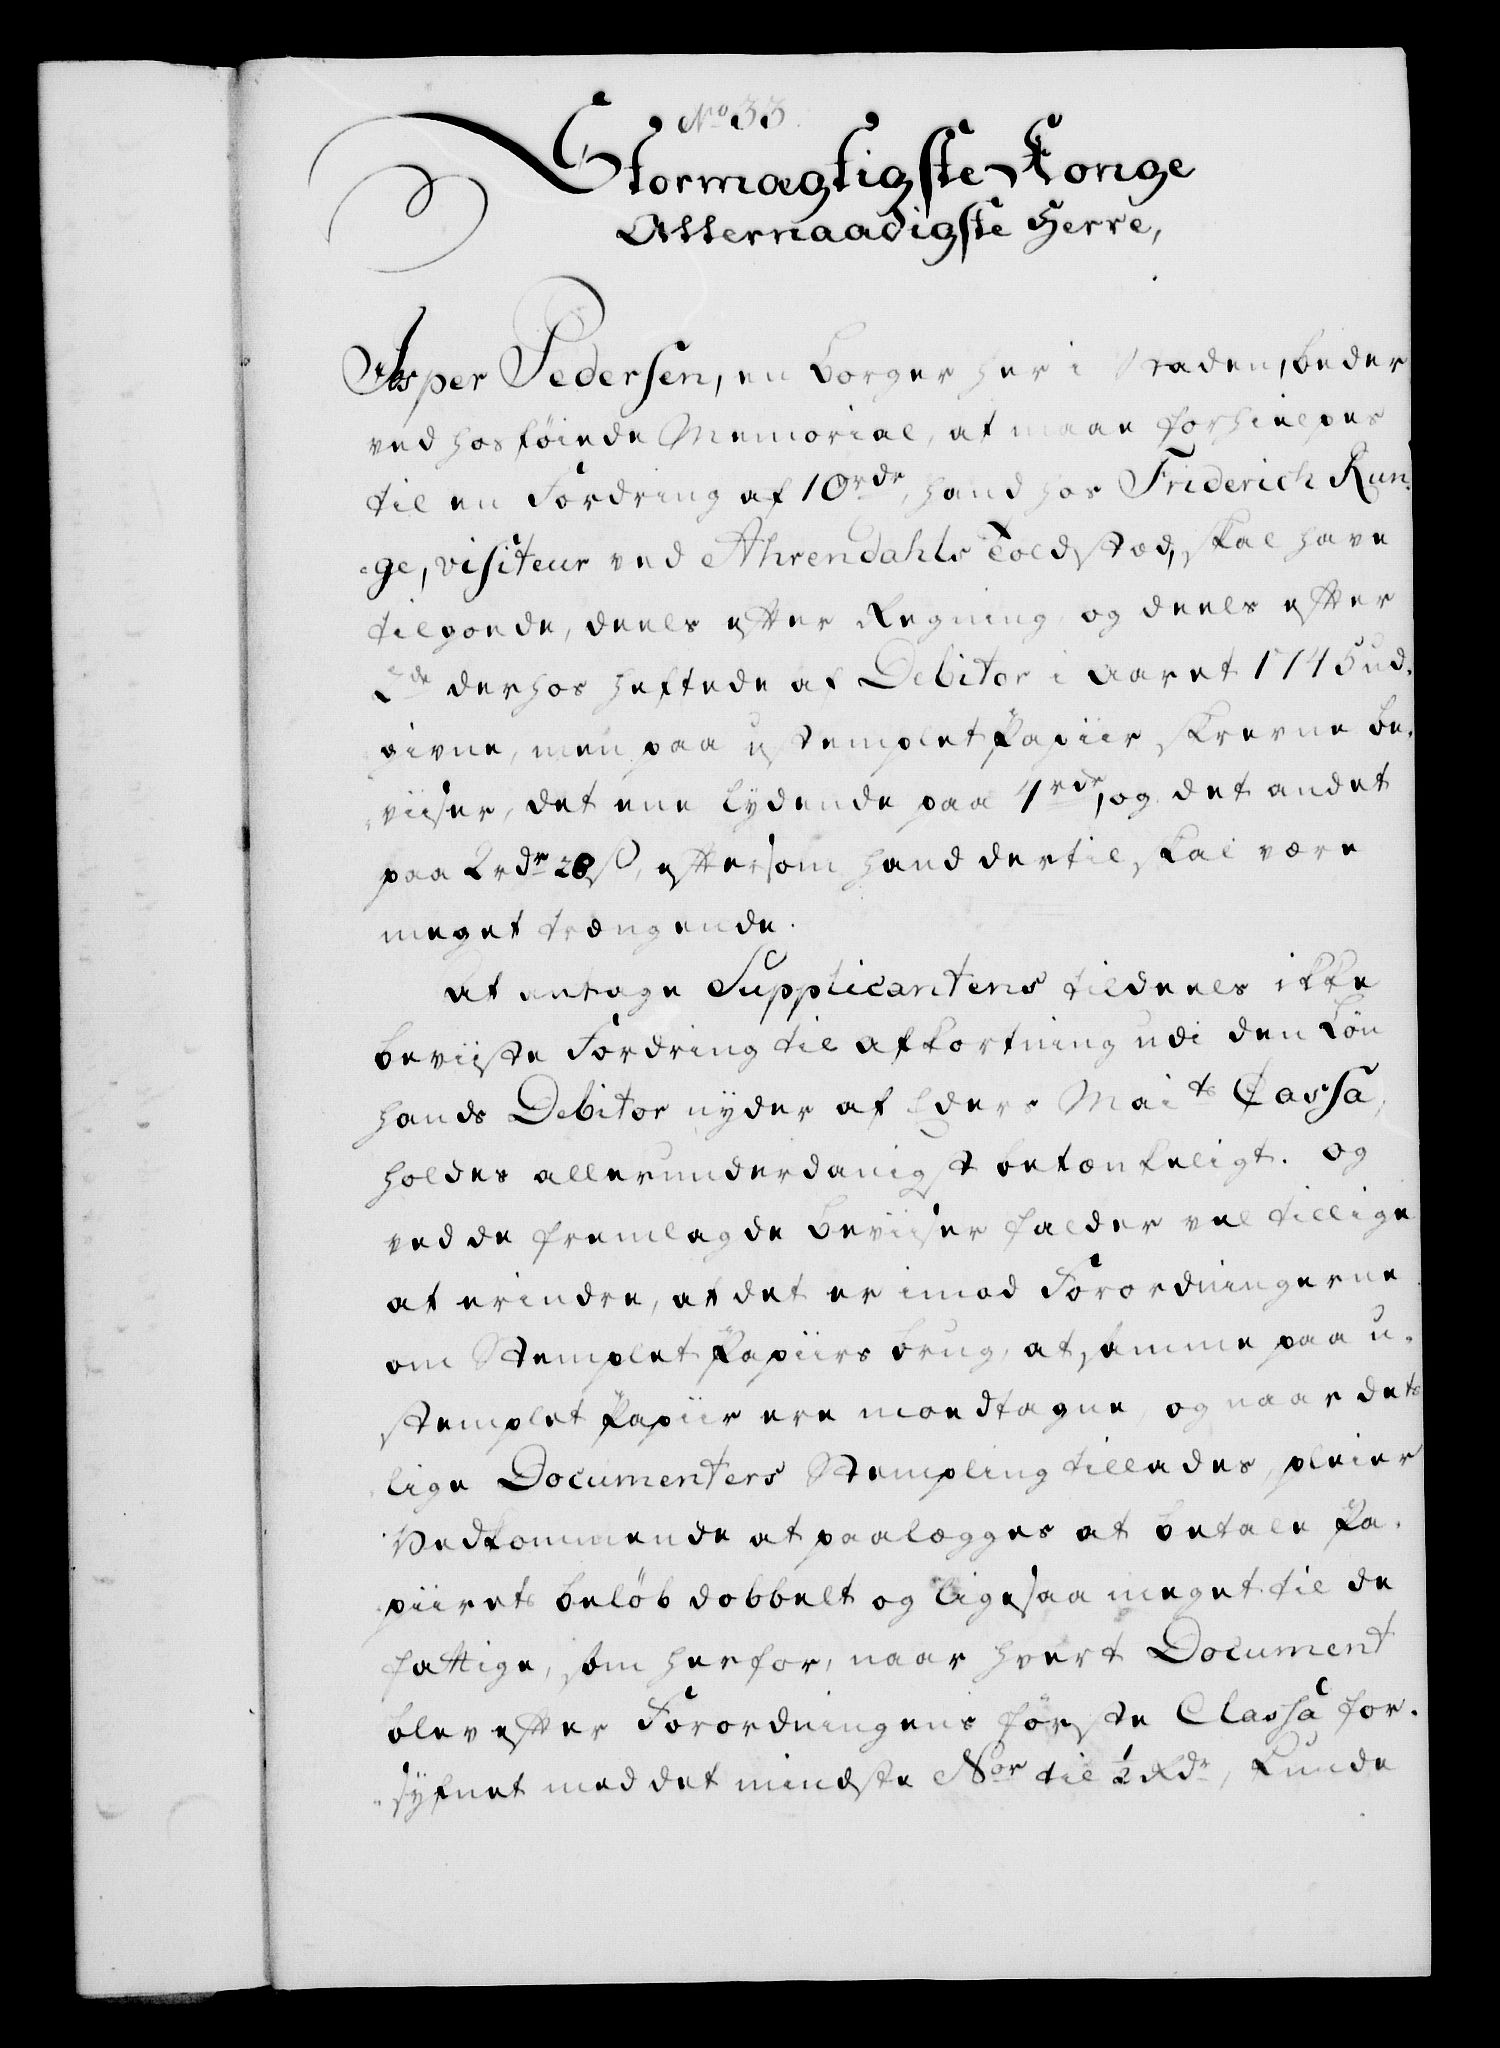 No 33.
Stormægtigste Konge
Allernaadigste Herre,
Jesper Pedersen, en borger her i Staden, beder
ved hosföiede Memorial, at maae forhielpes
til en Fordring af 10 rdr, hand hos Friderich Run-
ge, visiteur ved Ahrendahls Toldsted, skal have
tilgoede, deels efter Regning, og deels efter
2de derhos heftede af Debitor i aaret 1745 ud-
givne, men paa ustemplet Papiir skrevne be-
viiser, det ene lydende paa 4 rdr, og det andet
paa 2 rdr 28 s, eftersom hand dertil skal være
meget trængende.
At antage Supplicantens tildeels ikke
beviiste Fordring til afkortning udi den Lön
hands Debitor nyder af Eders Maits Cassa,
holdes allerunderdanigst betænkeligt. og
ved de fremlagde beviiser falder vel tillige
at erindre, at det er imod Forordningerne
om Stemplet Papiirs brug, at samme paa u-
stemplet Papiir ere modtagne, og naar des-
lige Documenters Stempling tillades, pleier
Vedkommende at paalægges at betale Pa-
piirets belöb dobbelt og ligesaa meget til de
fattige, som herfor, naar hvert Document
blev efter Forordningens förste Classe for-
syfnet med det mindste Nor til 1/2 Rdr, kunde